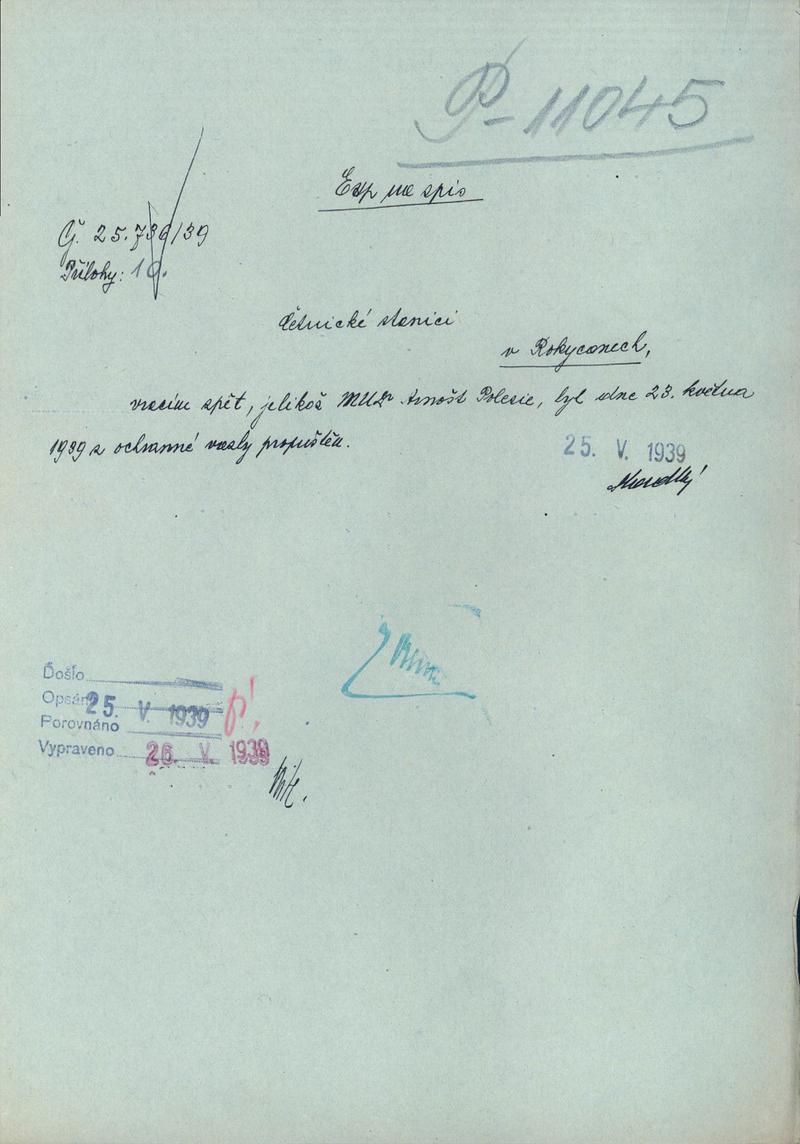 P-11045
Exp na spis
Č. 25.736/39
Přílohy: 10.
Četnické stanici
v Rokycanech,
vracím zpět, jelikož MUDr Arnošt Polesie, byl dne 23. května
1939 z ochranné vazby propuštěn.
25. V. 1939
Došlo
Opsáno 25. V. 1939
Porovnáno
Vypraveno 26. V. 1939